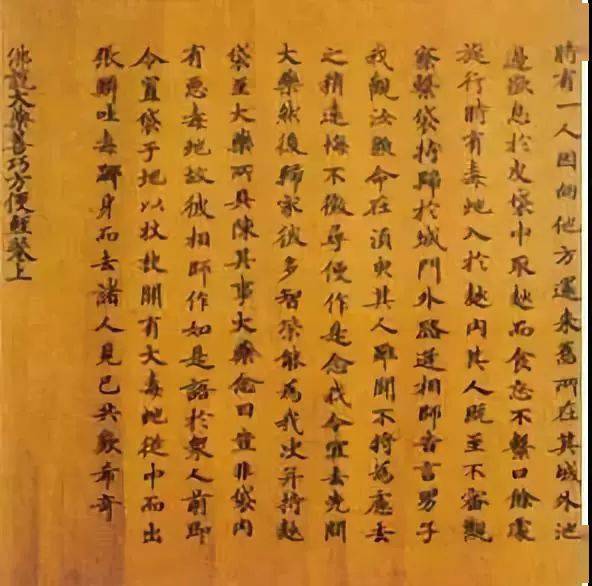 時有一人因向他方還来舊所在其城外池
邊歇息於皮袋中取麨而食忘不繫口餘處
旋行時有毒虵入於麨内其人既至不審觀
察繫袋持歸於城門外路逢相師告言男子
我觀汝顔命在湏臾其人雖聞不将為慮去
之稍遠悔不徴尋便作是念我今宜去先問
大藥然後歸家彼多智策能為我決并持麨
袋至大藥所具陳其事大藥念曰豈非袋内
有惡毒虵故彼相師作如是語於衆人前即
令置袋于地以杖開有大毒虵從中而出
張吐毒身而去諸人見已共歎希奇
佛說大藥善巧方便經卷上